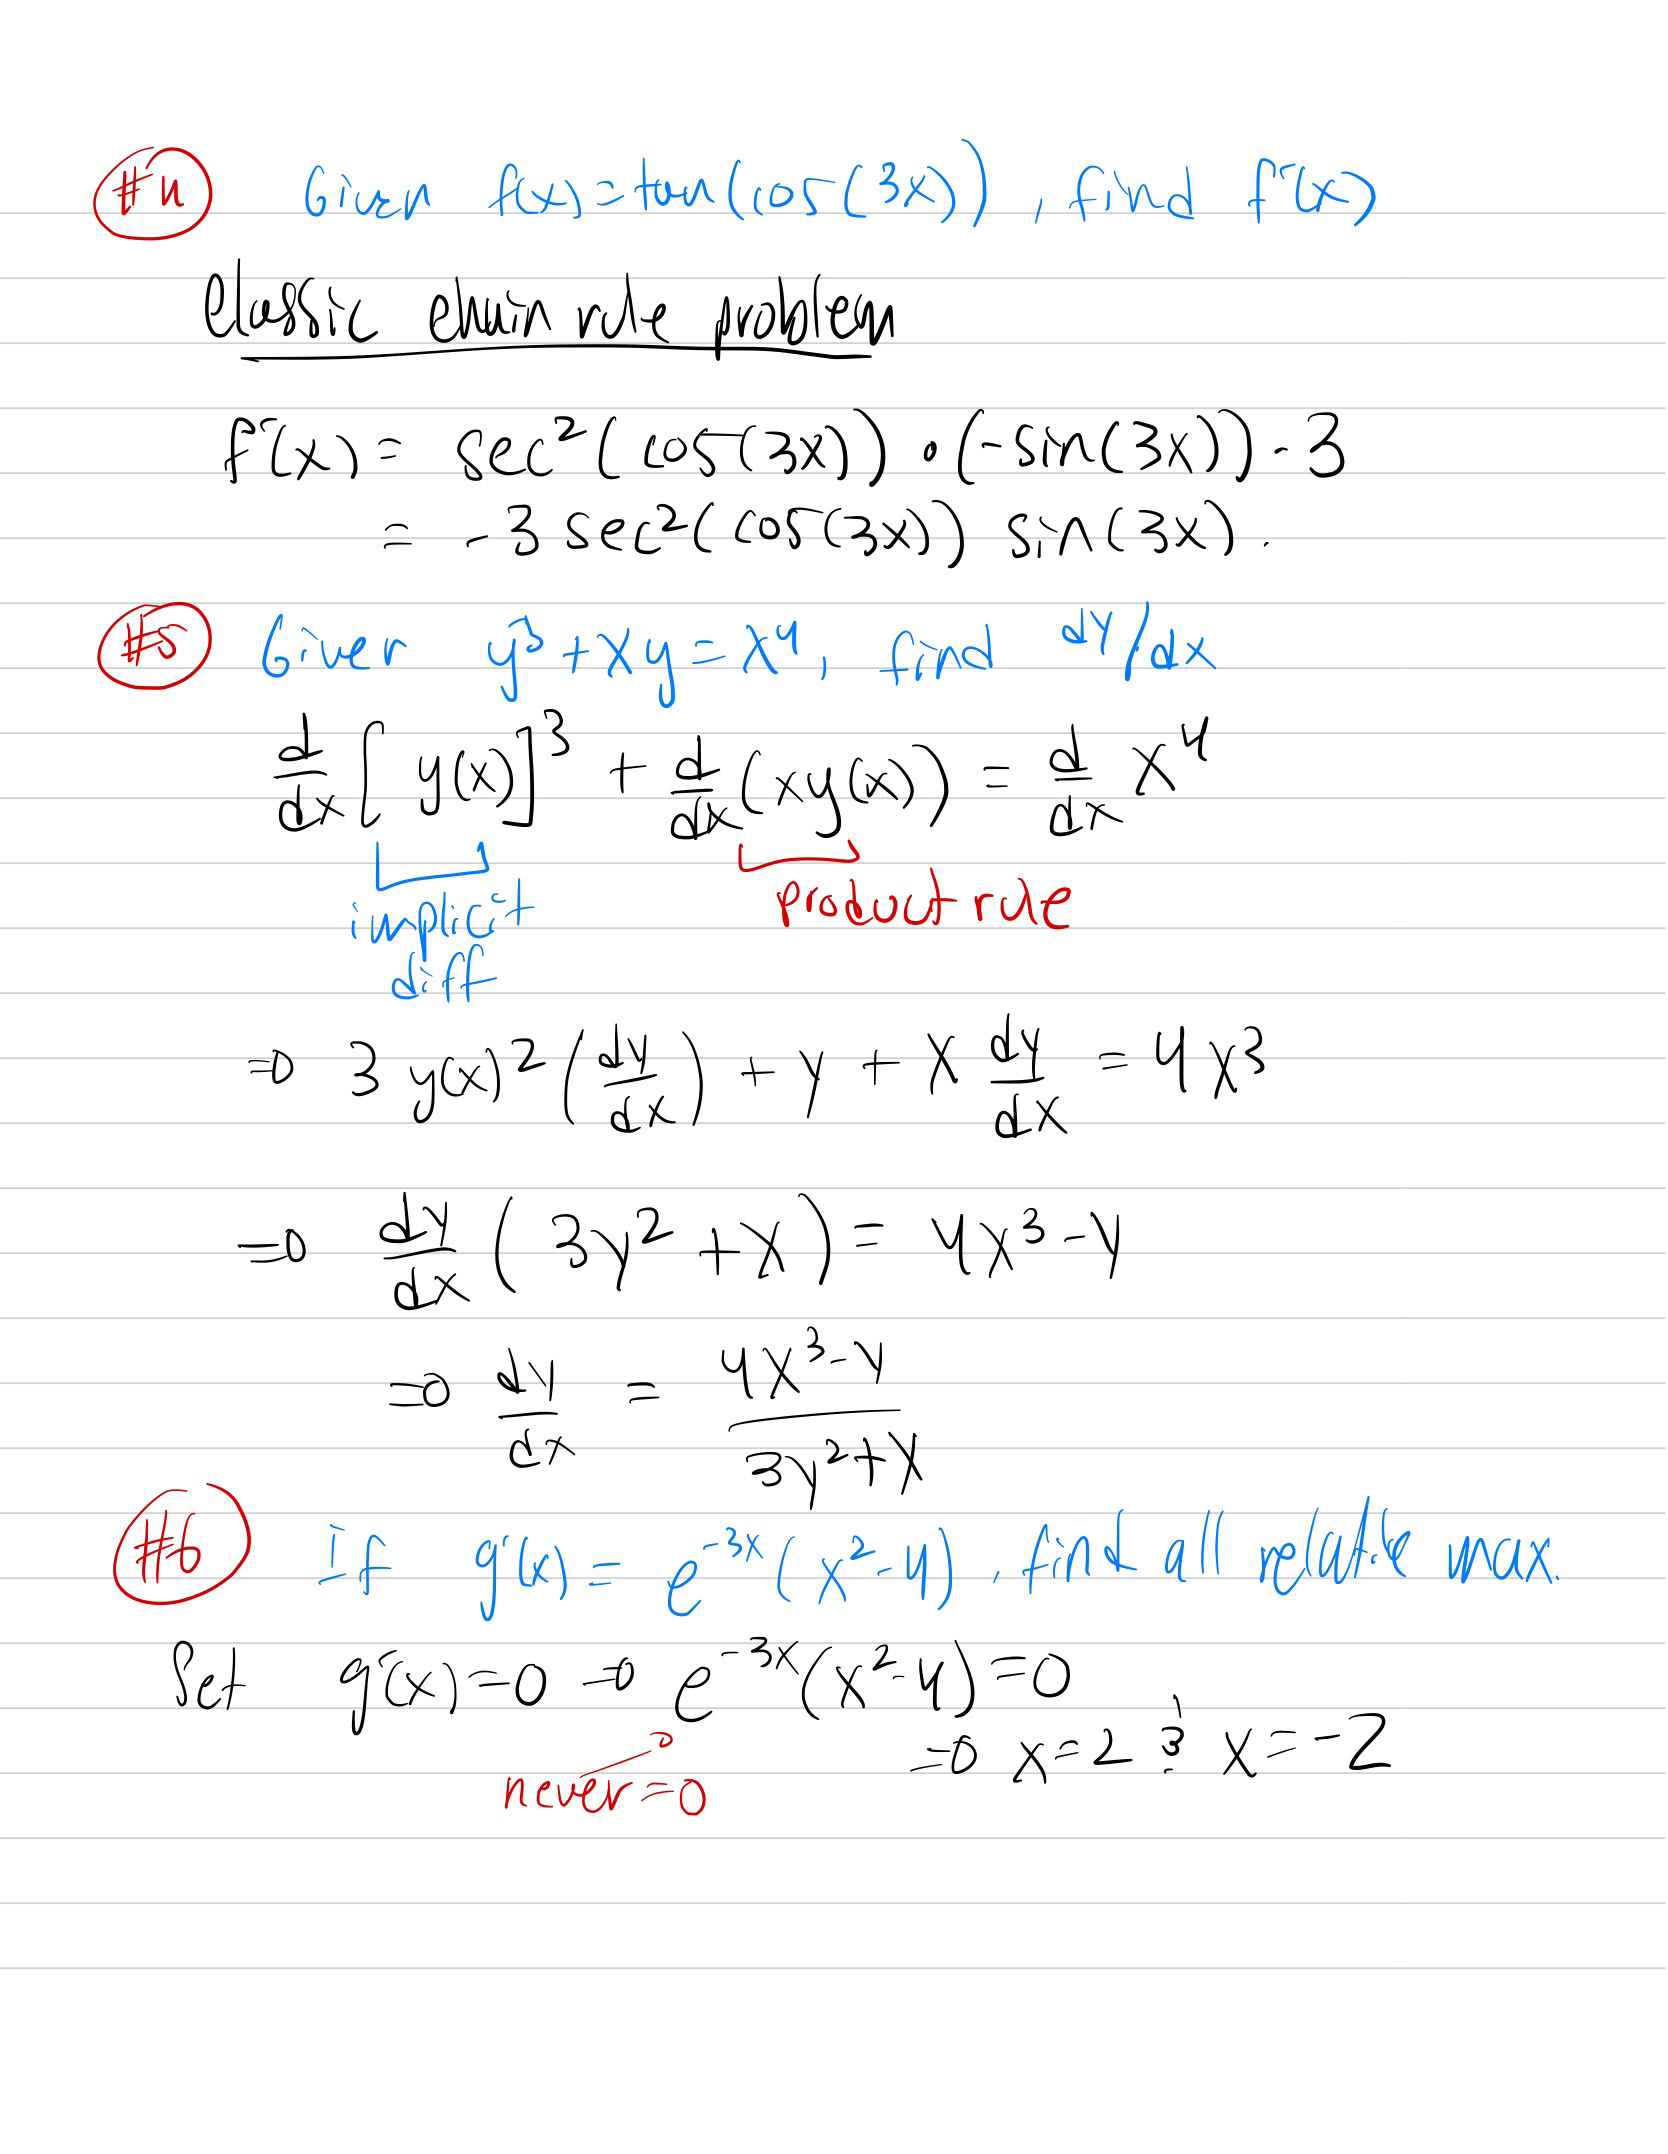 #4 Given f(x)=tan(cos(3x)), find f'(x)
Classic chain rule problem
f'(x) = sec²(cos(3x)) • (-sin(3x)) · 3
= -3 sec²(cos(3x)) sin(3x).
#5 Given y³+xy=x⁴, find dy/dx
d/dx [y(x)]³ + d/dx (xy(x)) = d/dx x⁴
implicit diff
product rule
⇒ 3 y(x)² (dy/dx) + y + x dy/dx = 4x³
⇒ dy/dx (3y² + x) = 4x³ - y
⇒ dy/dx = (4x³-y)/(3y²+x)
#6 If g'(x) = e^(-3x) (x²-4), find all relative max.
Set g'(x)=0 ⇒ e^(-3x)(x²-4)=0
never=0
⇒ x=2 & x=-2